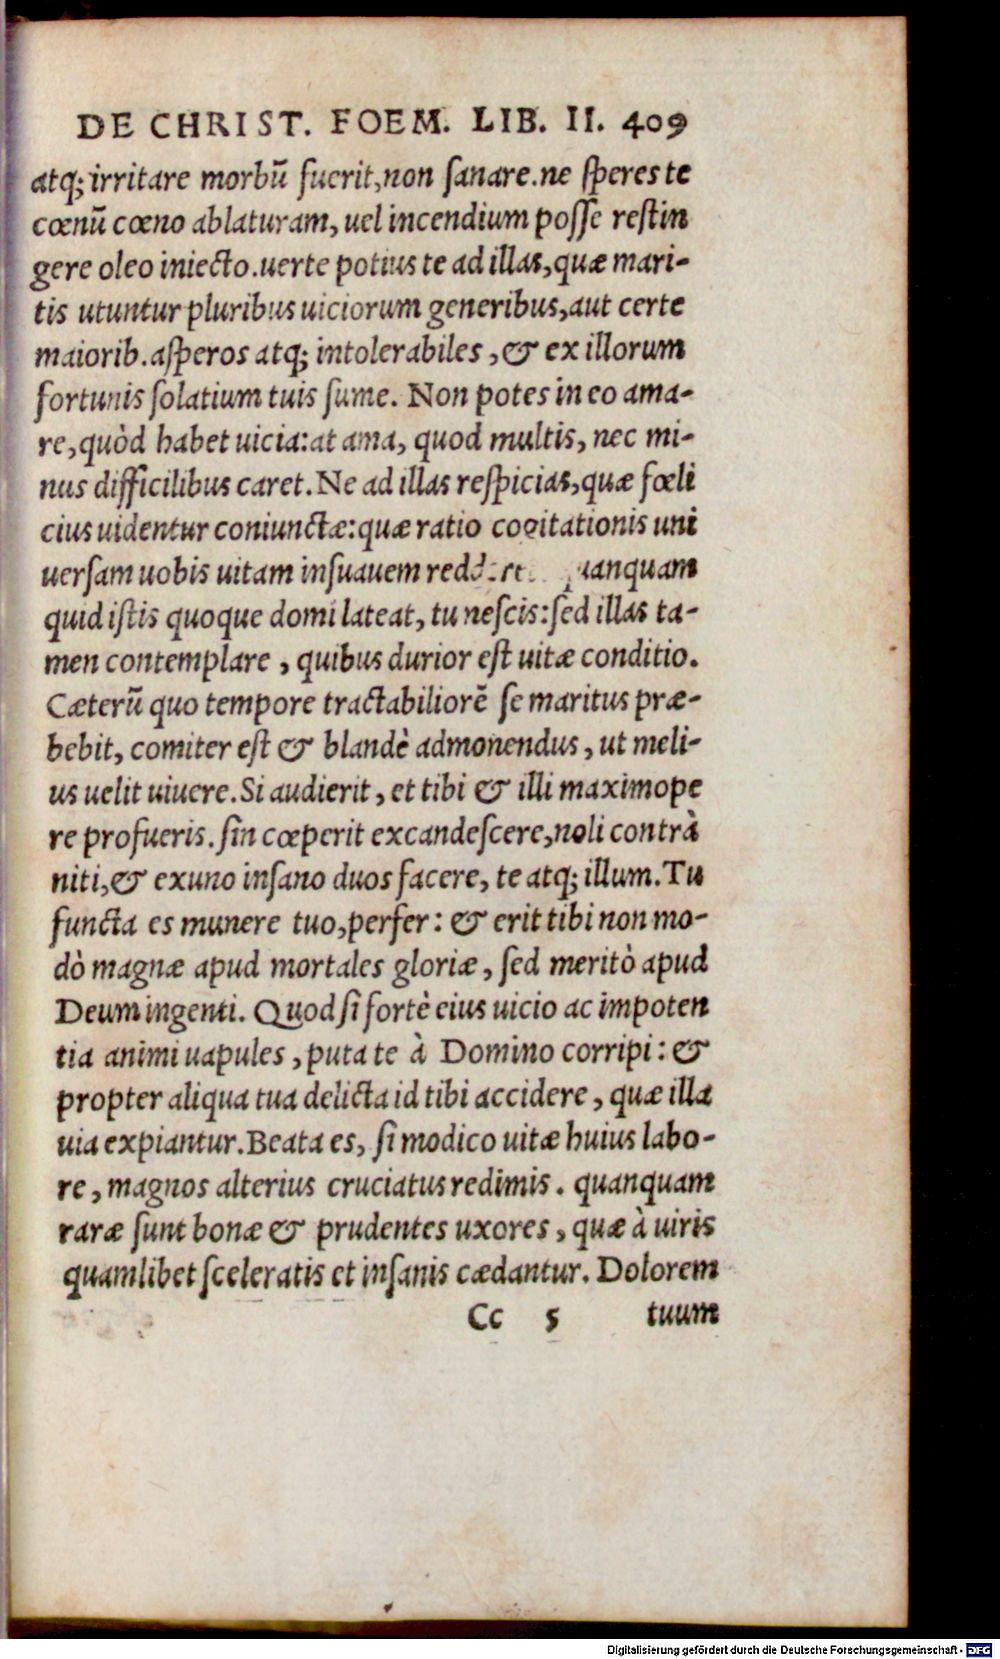 DE CHRIST. FOEM. LIB. II. 409
atq; irritare morbũ fuerit, non ſanare. ne ſperes te
cœnũ cœno ablaturam, uel incendium poſſe reſtin
gere oleo iniecto. uerte potius te ad illas, quæ mari-
tis utuntur pluribus uiciorum generibus, aut certe
maiorib. aſperos atq; intolerabiles, & ex illorum
fortunis ſolatium tuis ſume. Non potes in eo ama-
re, quòd habet uicia: at ama, quod multis, nec mi-
nus difficilibus caret. Ne ad illas reſpicias, quæ fœli
cius uidentur coniunctæ: quæ ratio cogitationis uni
uerſam uobis uitam inſuauem uanquam
quid iſtis quoque domi lateat, tu neſcis: ſed illas ta-
men contemplare, quibus durior eſt uitæ conditio.
Cæterũ quo tempore tractabiliorẽ ſe maritus præ-
bebit, comiter eſt & blandè admonendus, ut meli-
us uelit uiuere. Si audierit, et tibi & illi maximope
re profueris. ſin cœperit excandeſcere, noli contrà
niti, & ex uno inſano duos facere, te atq; illum. Tu
functa es munere tuo, perfer: & erit tibi non mo-
dò magnæ apud mortales gloriæ, ſed meritò apud
Deum ingenti. Quod ſi fortè eius uicio ac impoten
tia animi uapules, puta te à Domino corripi: &
propter aliqua tua delicta id tibi accidere, quæ illa
uia expiantur. Beata es, ſi modico uitæ huius labo-
re, magnos alterius cruciatus redimis. quanquam
raræ ſunt bonæ & prudentes uxores, quæ à uiris
quamlibet ſceleratis et inſanis cædantur. Dolorem
Cc 5 tuum
Digitalisierung gefördert durch die Deutsche Forschungsgemeinschaft - DFG